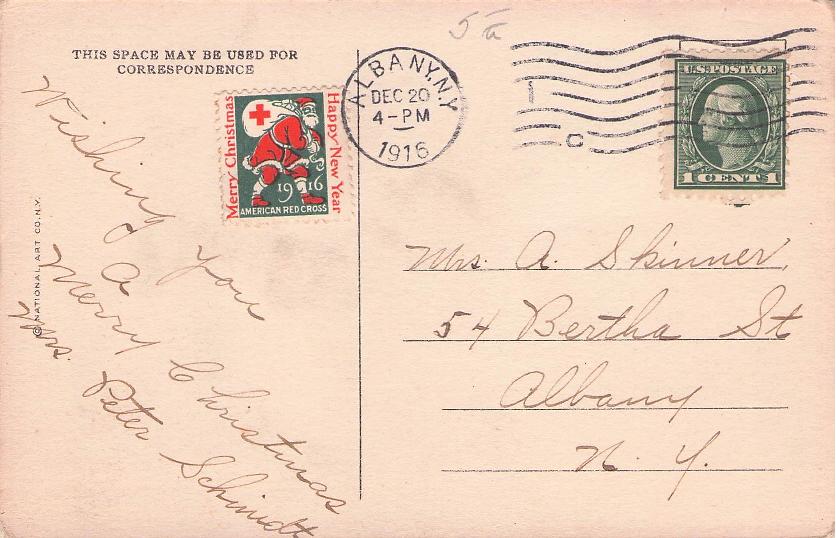 5¢
THIS SPACE MAY BE USED FOR
CORRESPONDENCE
Merry Christmas
Happy New Year
1916
AMERICAN RED CROSS
ALBANY, N.Y.
DEC 20
4-PM
1916
U.S. POSTAGE
1 CENT 1
Wishing you
a
Merry Christmas
Mrs. Peter Schmidt
© NATIONAL ART CO. N.Y.
Mrs. A. Skinner,
54 Bertha St
Albany
N. Y.